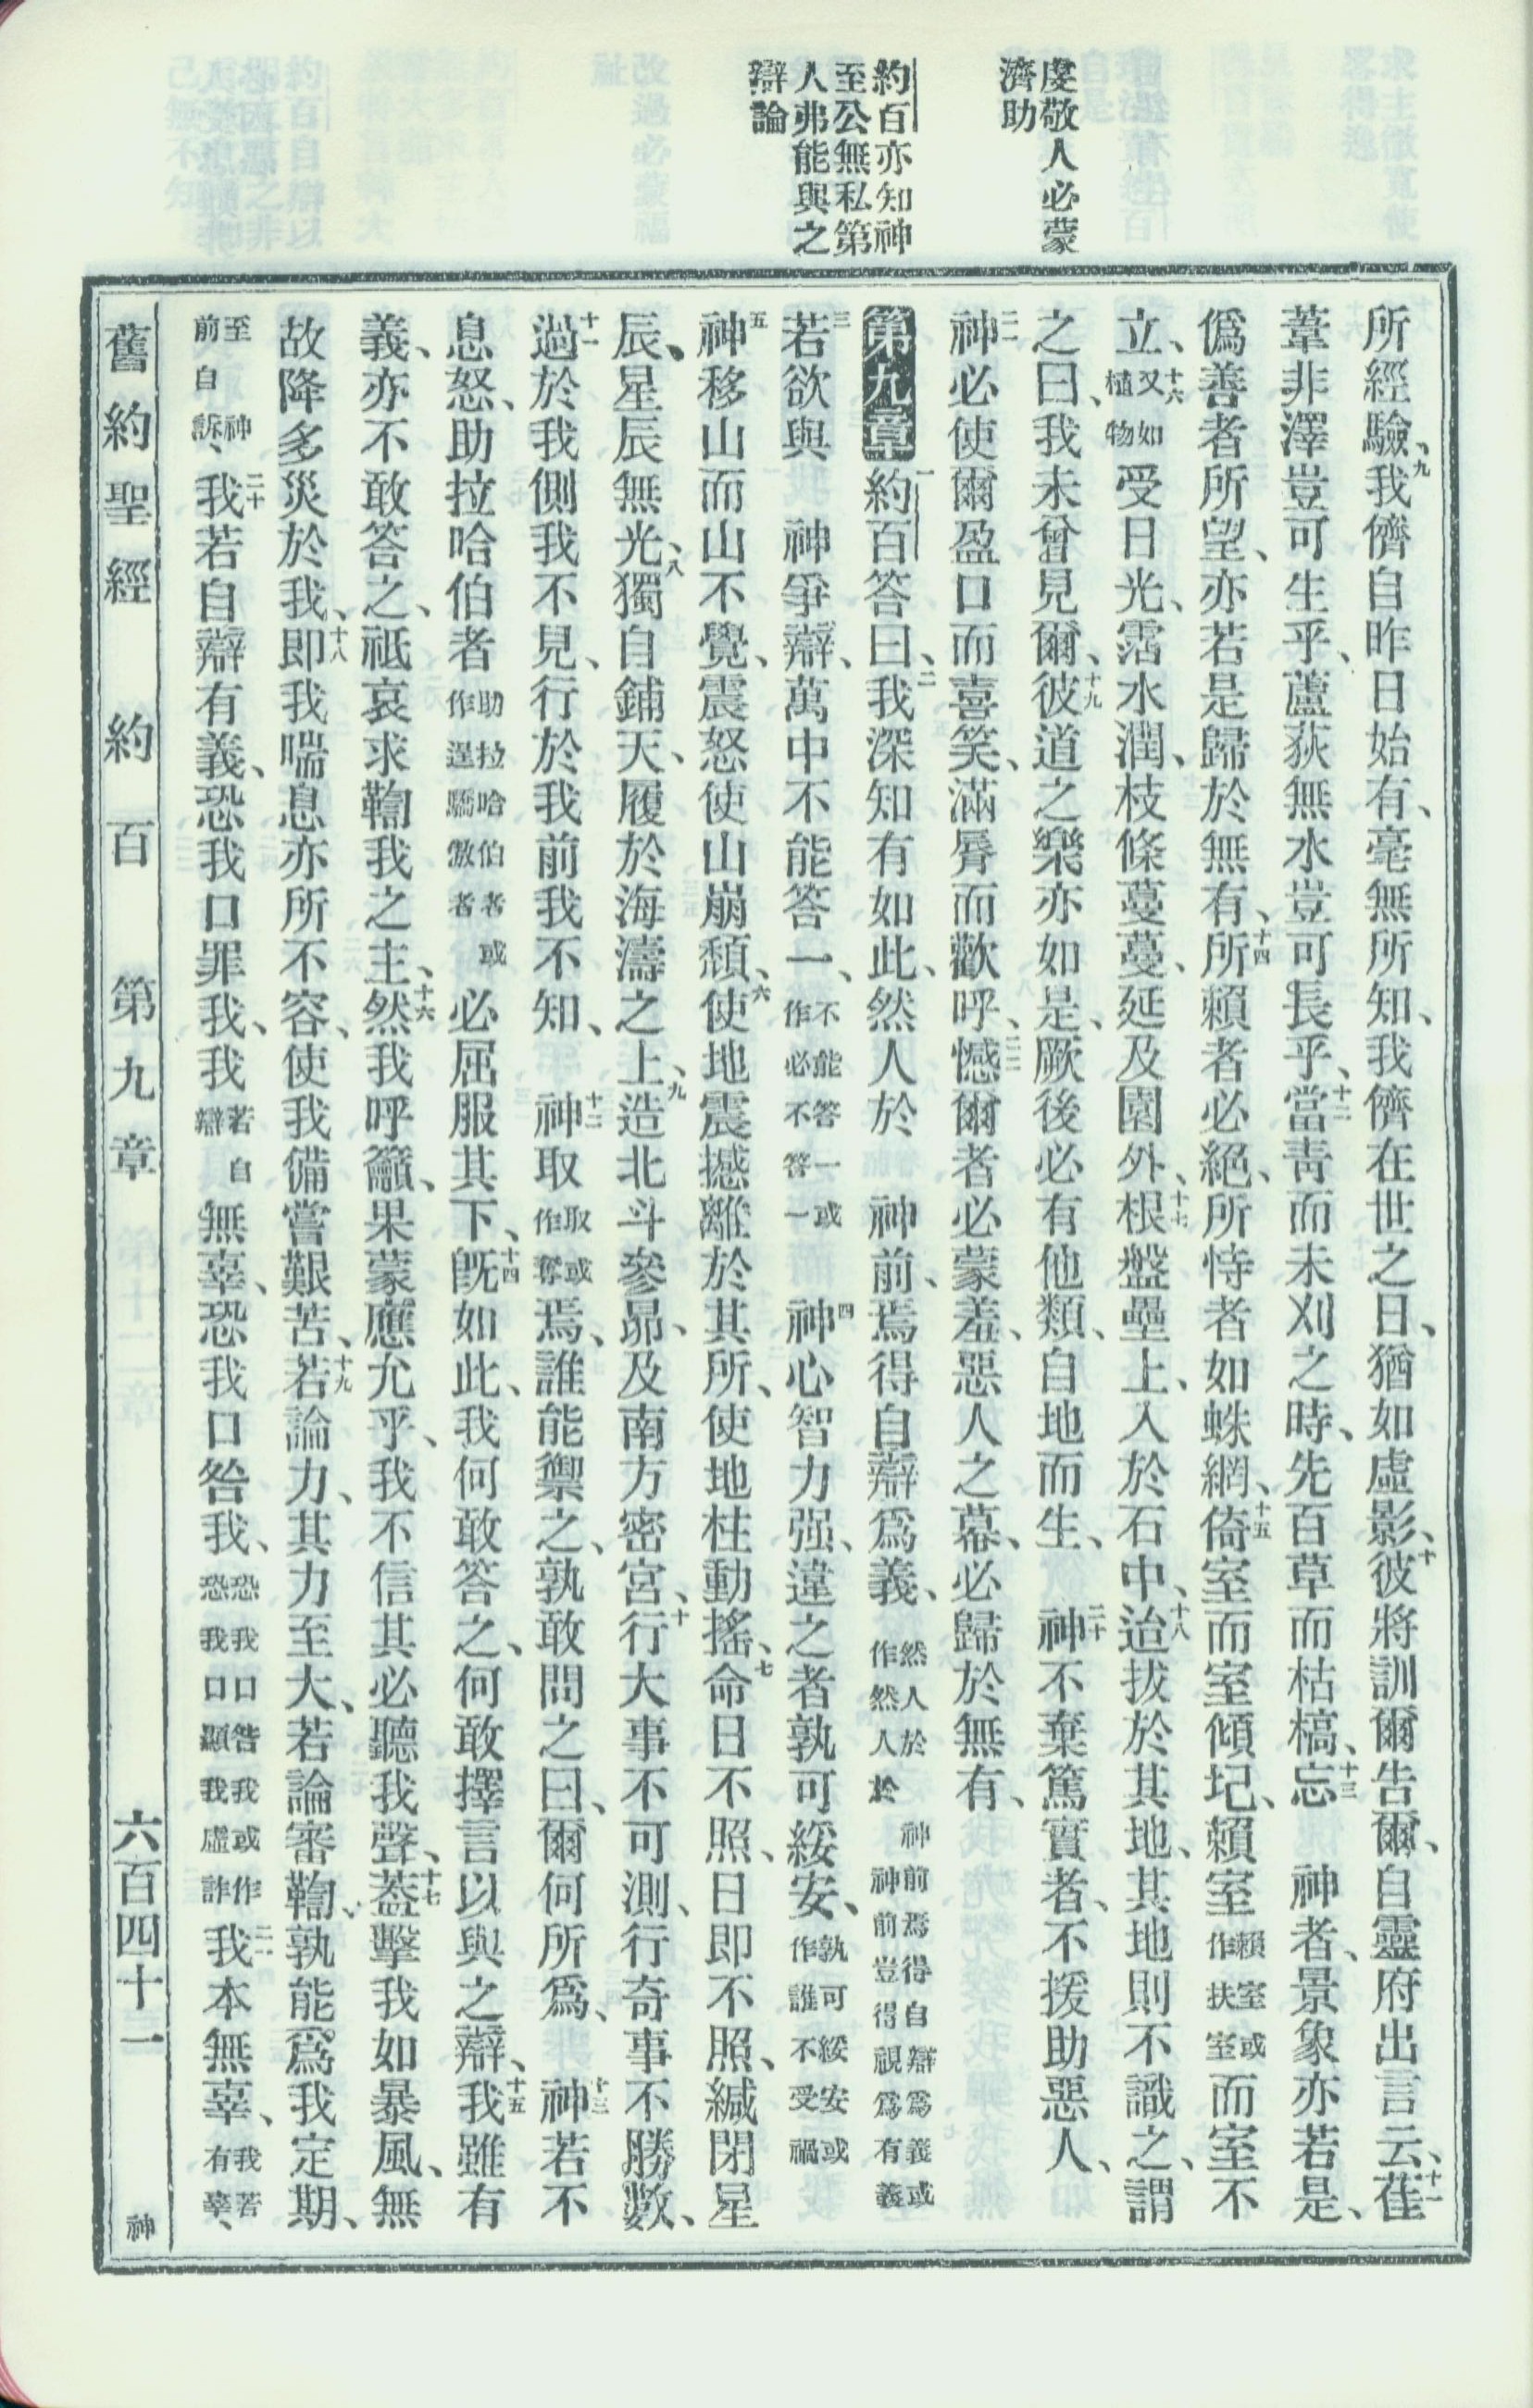 虔敬人必蒙
濟助
約百亦知神
至公無私第
人弗能與之
辯論
所經驗、九我儕自昨日始有、毫無所知、我儕在世之日、猶如虛影、十彼將訓爾告爾、自靈府出言云、十一萑
葦非澤豈可生乎、蘆荻無水豈可長乎、十二當青而未刈之時、先百草而枯槁、十三忘 神者、景象亦若是、
僞善者所望、亦若是歸於無有、十四所賴者必絕、所恃者如蛛網、十五倚室而室傾圮、賴室賴室或作扶室而室不
立、十六又如植物受日光、霑水潤、枝條蔓蔓、延及園外、十七根盤壘上、入於石中、十八迨拔於其地、其地則不識之、謂
之曰、我未曾見爾、十九彼道之樂亦如是、厥後必有他類、自地而生、二十神不棄篤實者、不援助惡人、
二一神必使爾盈口而喜笑、滿脣而歡呼、二二憾爾者必蒙羞、惡人之幕、必歸於無有、
第九章 一約百答曰、二我深知有如此、然人於 神前、焉得自辯爲義、然人於 神前焉得自辯爲義或作然人於 神前豈得視爲有義
三若欲與 神爭辯、萬中不能答一、不能答一或作必不答一 四神心智力强、違之者孰可綏安、孰可綏安或作誰不受禍
五神移山而山不覺、震怒使山崩頹、六使地震撼離於其所、使地柱動搖、七命日不照、日即不照、緘閉星
辰、星辰無光、八獨自鋪天、履於海濤之上、九造北斗參昴、及南方密宮、十行大事不可測、行奇事不勝數、
十一過於我側我不見、行於我前我不知、 十二神取取或作奪焉、誰能禦之、孰敢問之曰、爾何所爲、 十三神若不
息怒、助拉哈伯者助拉哈伯者或作逞驕傲者必屈服其下、十四旣如此、我何敢答之、何敢擇言以與之辯、十五我雖有
義、亦不敢答之、祗哀求鞫我之主、十六然我呼籲、果蒙應允乎、我不信其必聽我聲、十七蓋擊我如暴風、無
故降多災於我、十八即我喘息亦所不容、使我備嘗艱苦、十九若論力、其力至大、若論審鞫、孰能爲我定期、
至 神前自訴、二十我若自辯有義、恐我口罪我、我若自辯無辜、恐我口咎我、恐我口咎我或作恐我口顯我虛詐二一我本無辜、我若有辜、
舊約聖經 約百 第九章 六百四十一 神